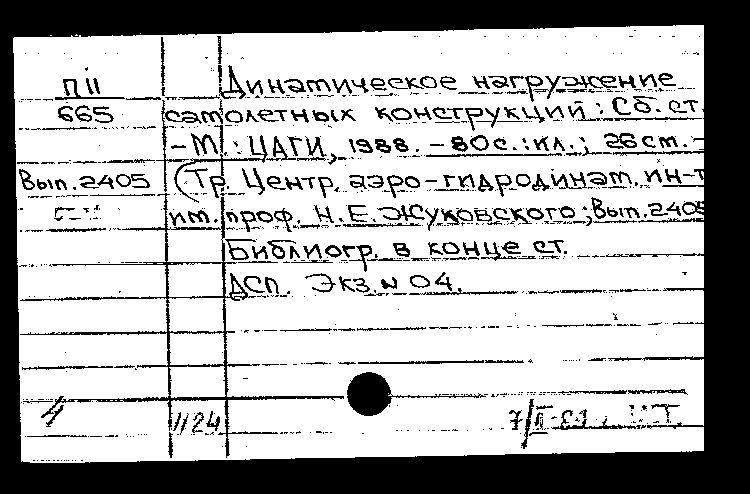 П11 Динамическое нагружение
665 самолетных конструкций: Сб. ст.
– М.: ЦАГИ, 1988. – 80с.: ил.; 26см. –
Вып.2405 (Тр. Центр. аэро-гидродинам. ин-т
им. проф. Н.Е.Жуковского; Вып.2405
Библиогр. в конце ст.
ДСП. Экз.N 04.
4 1124